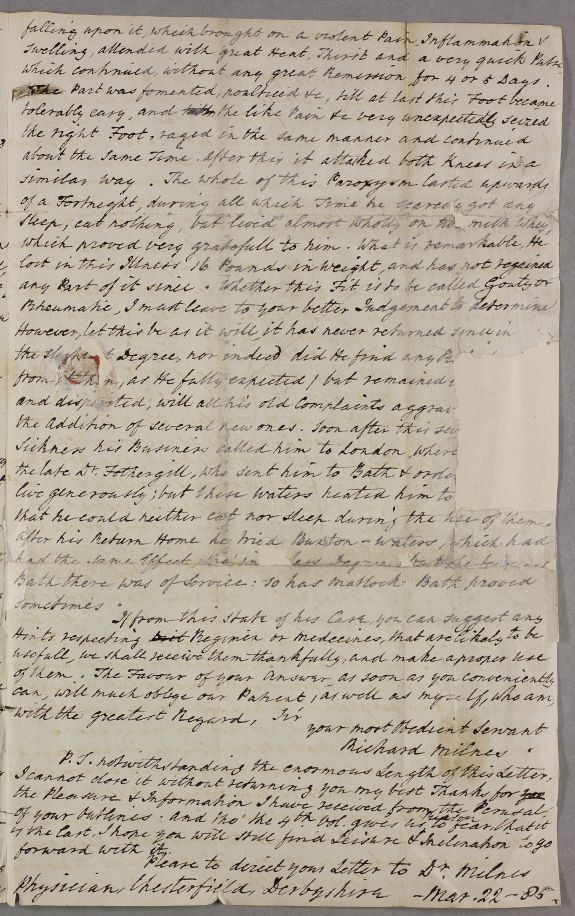 falling upon it, which brought on a violent Pain, Inflammation &
Swelling, attended with great Heat, Thirst and a very quick Pulse
which continued, without any great Remission for 4 or 5 Days.
The Part was fomented, poulticed &c, till at last this Foot became
tolerably easy, and the like Pain &c very unexpectedly seized
the right Foot, raged in the same manner and continued
about the Same Time. after this it attacked both Knees in a
similar way. The whole of this Paroxysm lasted upwards
of a Fortneght, during all which Time he scarcely got any
Sleep, eat nothing, but lived almost wholly on milk Whey,
which proved very gratefull to him. What is remarkable, He
lost in this Illness 16 Pounds in weight, and has not regained
any Part of it since. Whether this Fit is to be called Gouty or
Rheumatic, I must leave to your better Judgement to determine
However, let this be as it will it has never returned since in
the Degree, nor indeed did He find any
from as He fully expected! but remained
and dispirited, will all his old Complaints aggrav
the Addition of several new ones. Soon after this sev
Sickness his Business called him to London, where
the late Dr. Fothergill, who sent him to Bath & orde
live generously; but these waters heated him to
that he could neither eat nor sleep during the use of them.
after his Return Home he tried Buxton-waters, which had
had the same Effect in less Degree, but the
Bath there was of service: so has Matlock Bath proved
sometimes.
If from this state of his Case, you can suggest any
Hints respecting Regimen or medecines, that are likely to be
usefull, we shall receive them thankfully, and make a proper use
of them. The Favour of your Answer, as soon as you conveniently
can, will much oblige our Patient, as well as myself, who am,
with the greatest Regard, Sir
your most Obedient Servant
Richard Milnes.
P.S. notwithstanding the enormous Length of this Letter,
I cannot close it without returning you my best Thanks for
the Pleasure & Information I have received from the Perusal
of your outlines. and tho' the 4th Vol. gives us reason to fear, that it
is the last, I hope you will still find Leisure & Inclination to go
forward with it.
Please to direct your Letter to Dr. Milnes
Physician, Chesterfield, Derbyshire - Mar. 22 - 85